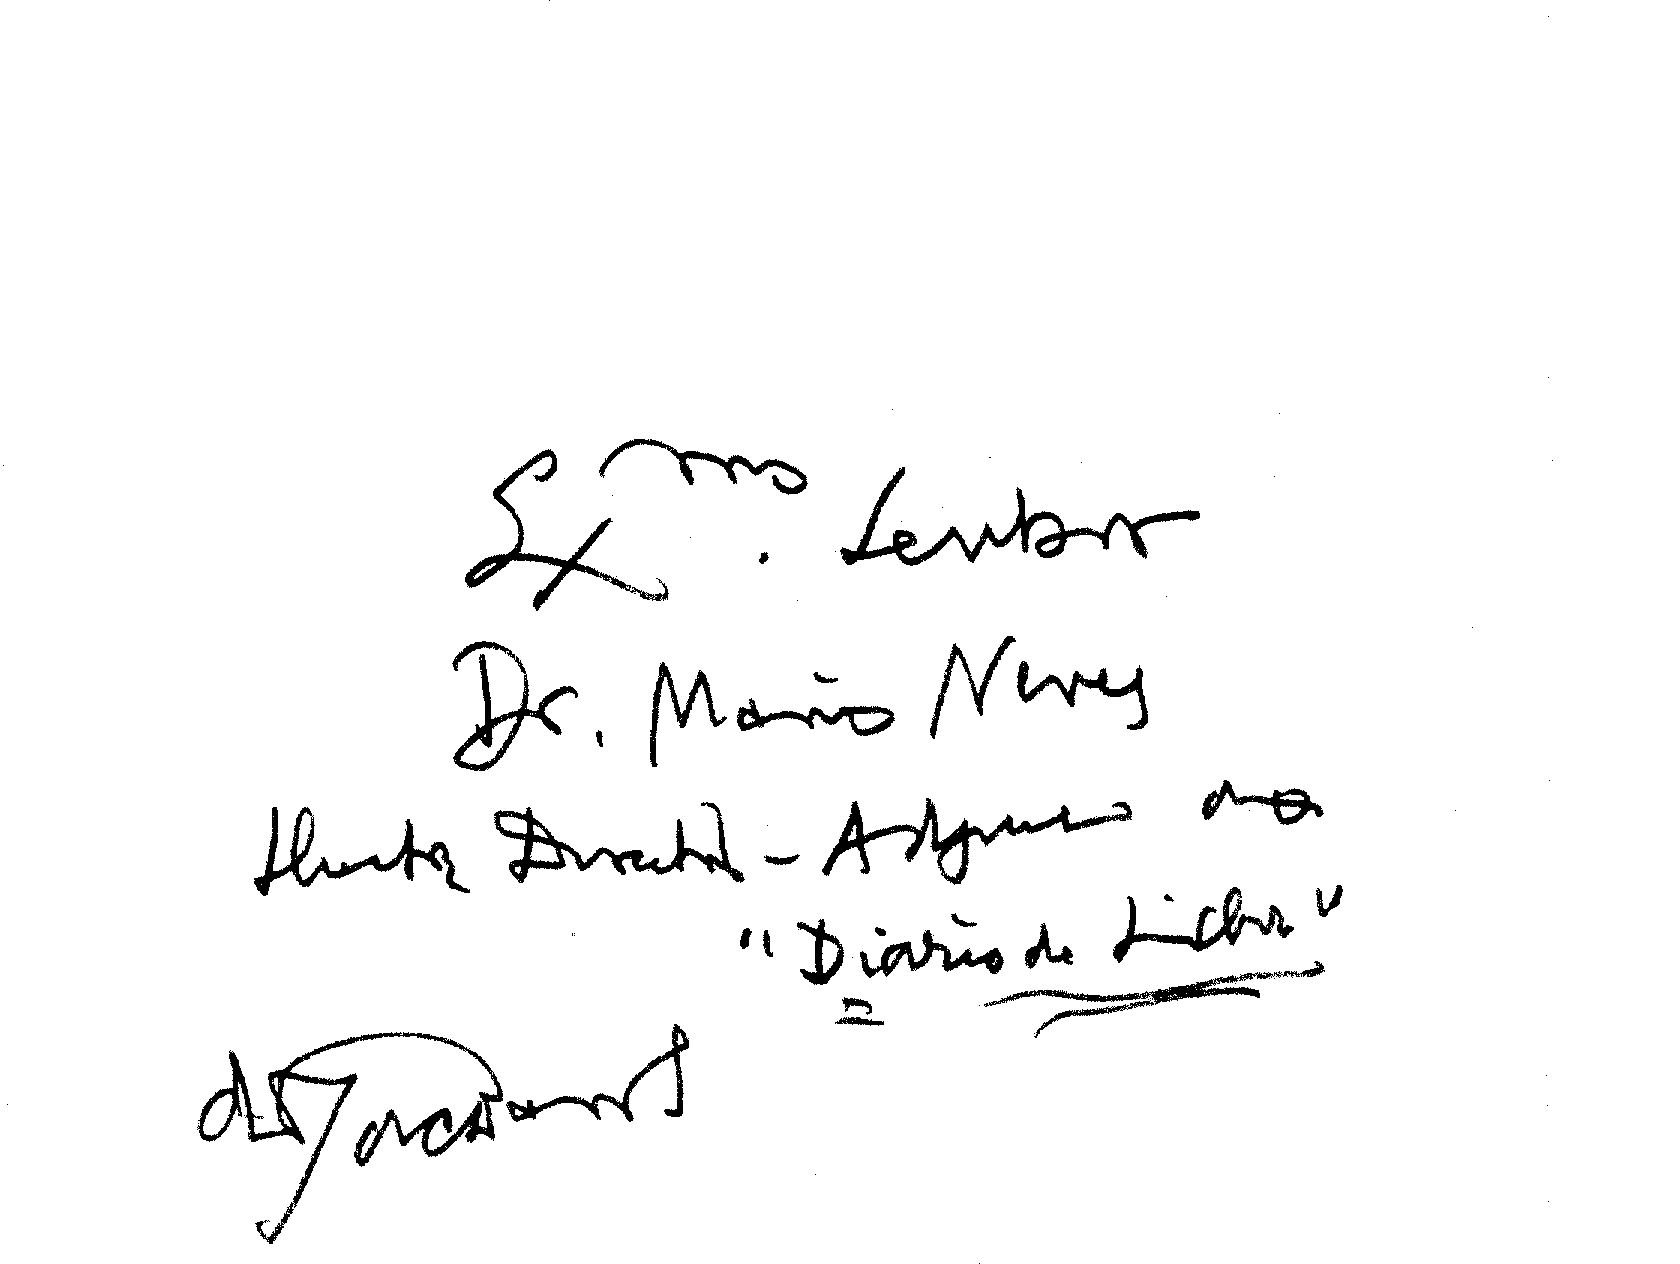 Exmo. Senhor
Dr. Mário Neves
Ilustre Director-Adjunto do
"Diário de Lisboa"